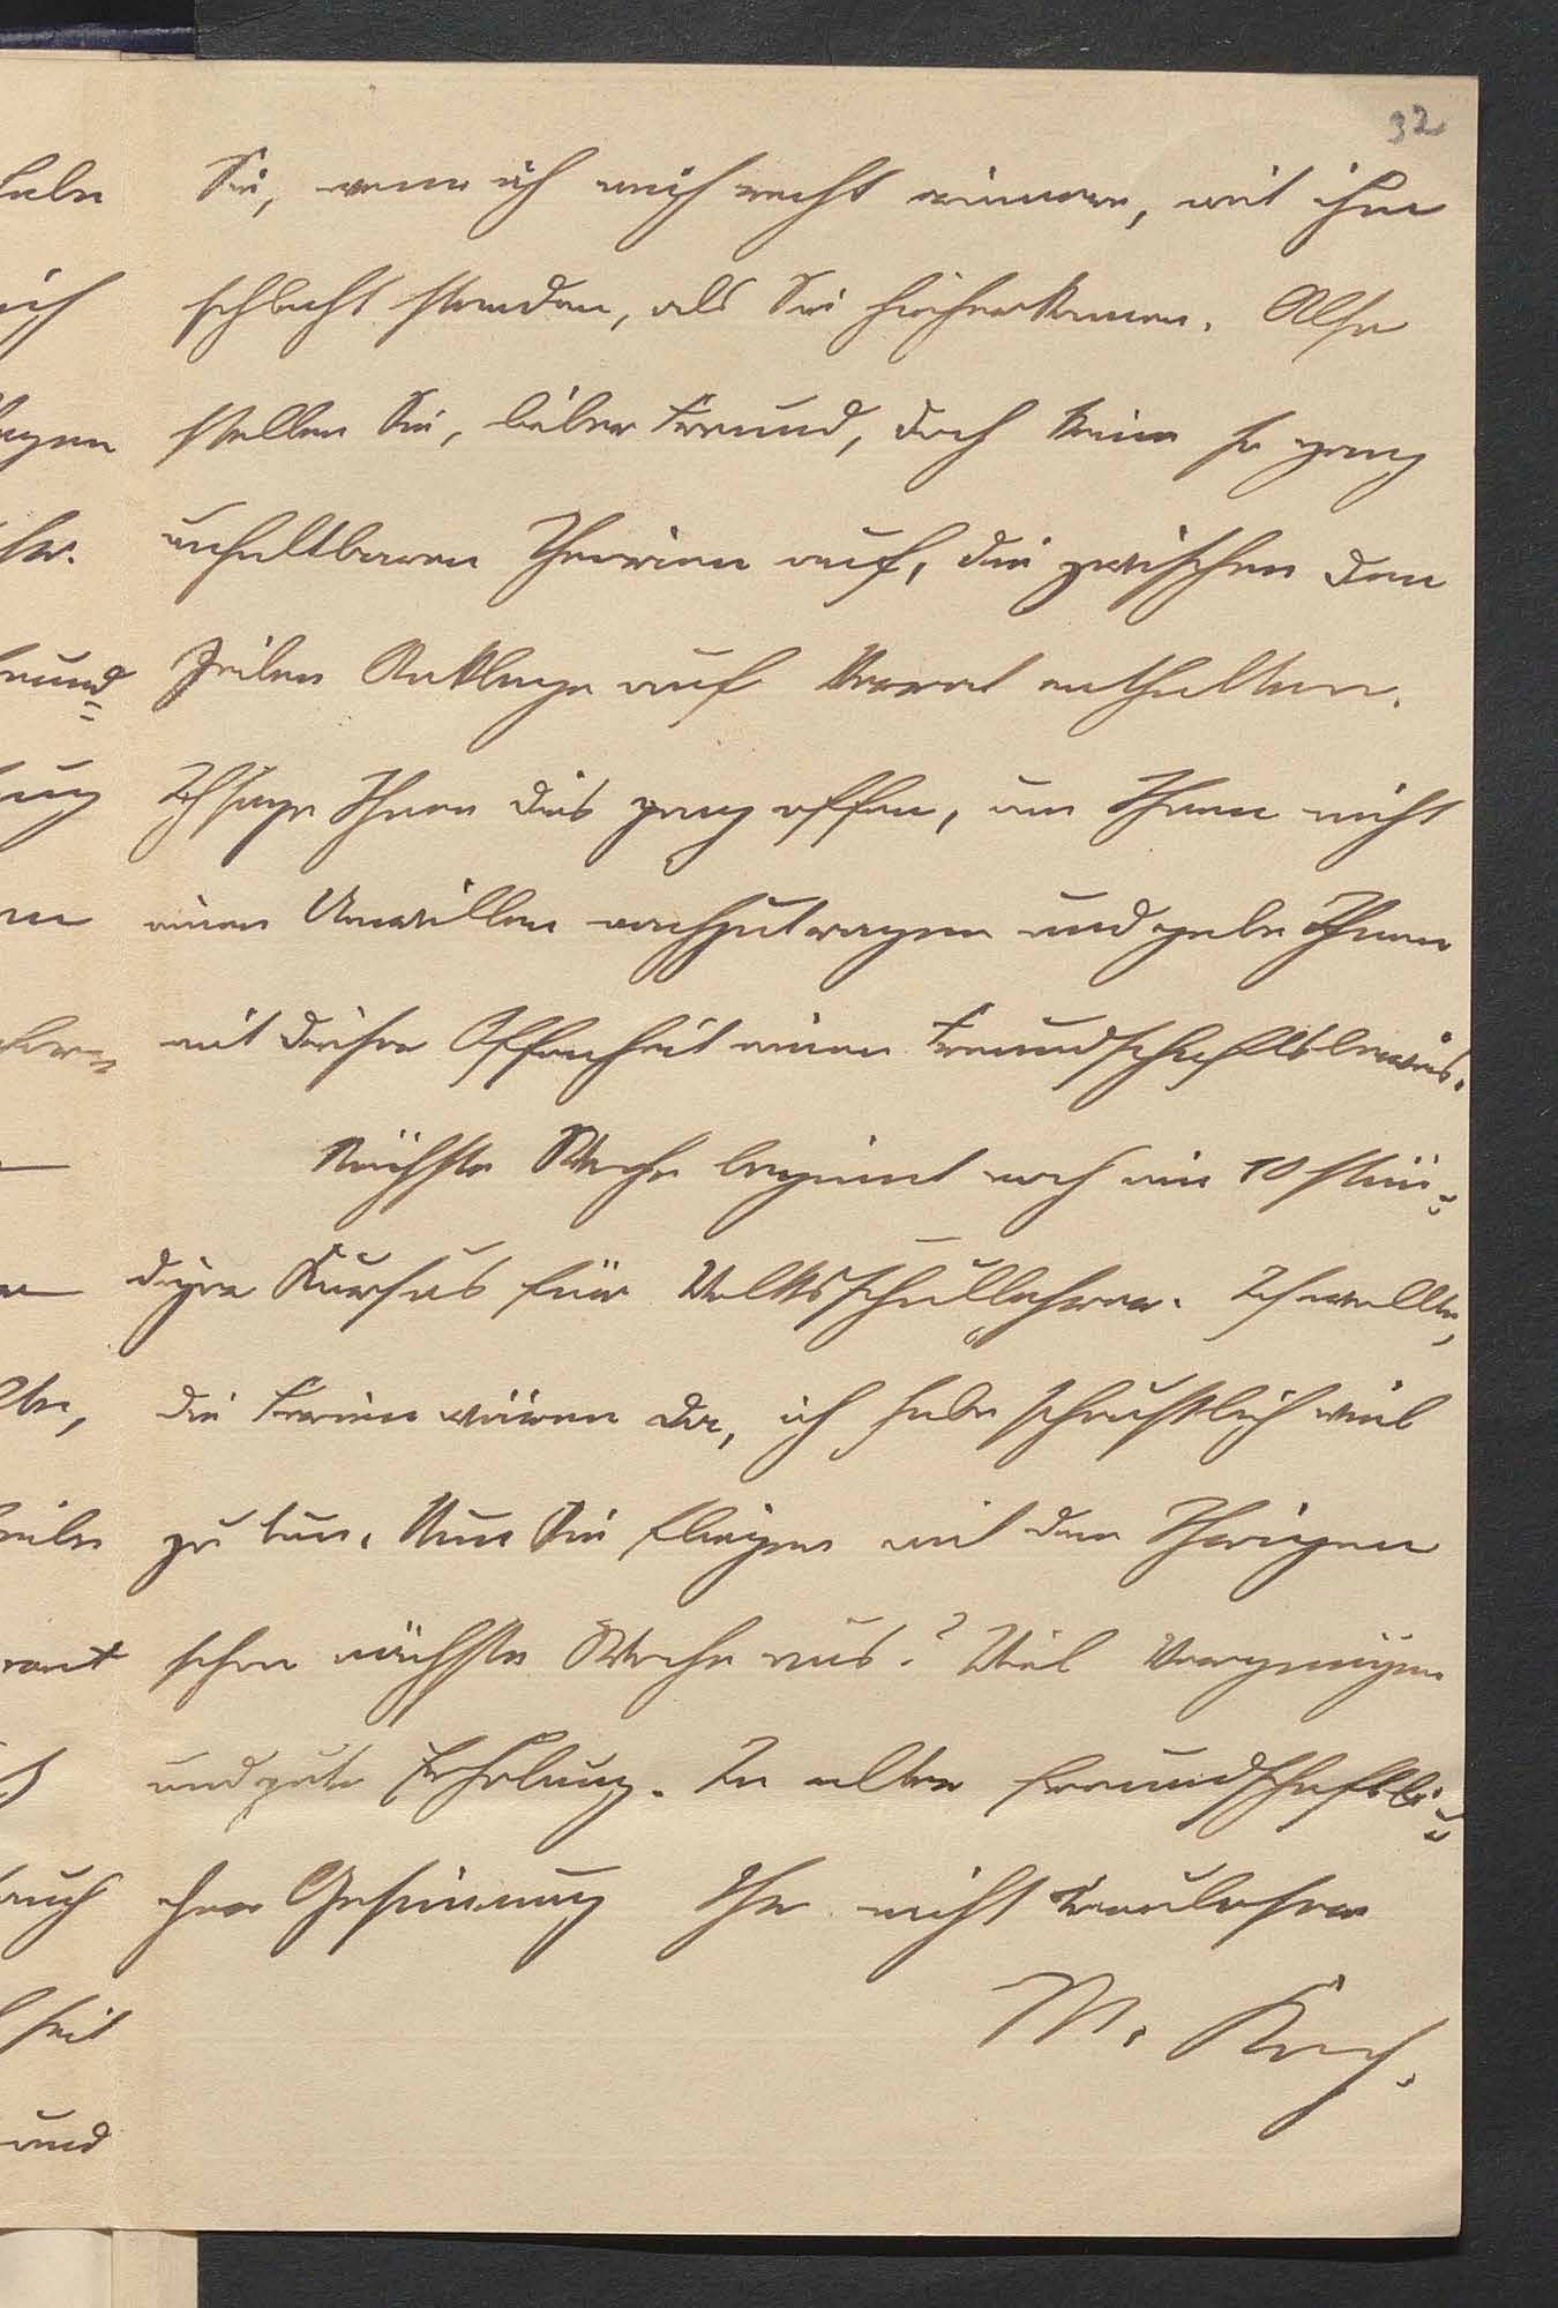 32
Sie, wenn ich mich recht erinnere, mit ihm
schlecht standen, als Sie hieherkamen. Also
stellen Sie, lieber Freund, doch keine so ganz
unhaltbaren Theorien auf, die zwischen den
Zeilen Anklage auf Verrat enthalten.
Ich sage Ihnen dies ganz offen, um Ihnen nicht
einen Unwillen nachzutragen und gebe Ihnen
mit dieser Offenheit einen Freundschaftsbeweis.
Nächste Woche beginnt noch ein 10 stün=
diger Kursus für Volksschullehrer. Ich wollte,
die Ferien wären da, ich habe scheußlich viel
zu tun. Nun Sie fliegen mit den Ihrigen
schon nächste Woche aus? Viel Vergnügen
und gute Erholung. In alter freundschaftli=
cher Gesinnung Ihr nicht treuloser
M. Koch.